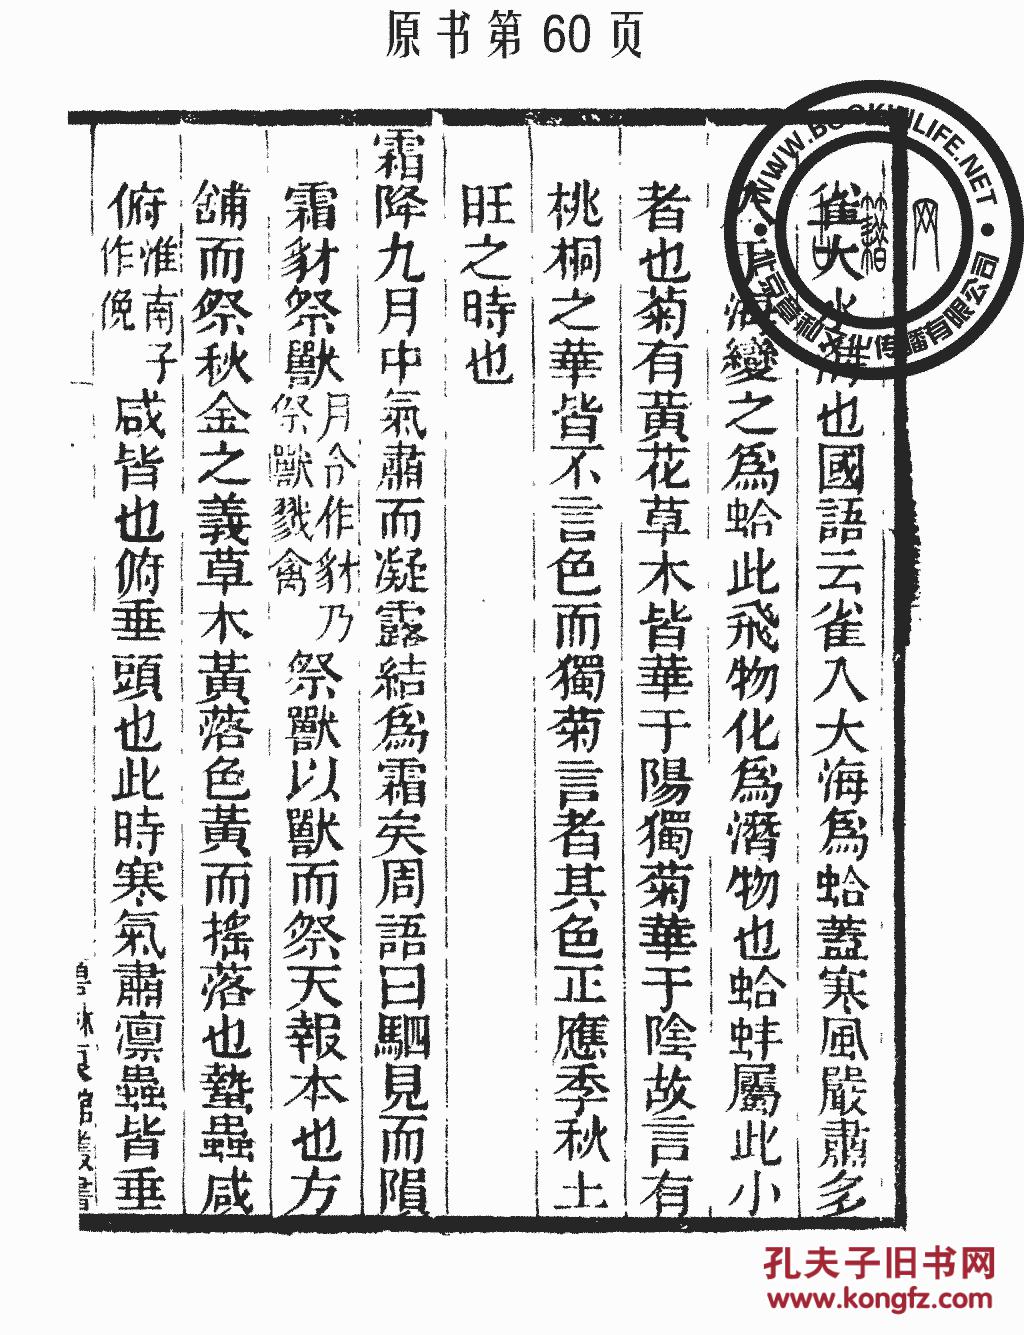 原书第 60 页
雀大水㴠也國語云雀入大海爲蛤蓋寒風嚴肅多
入于海變之爲蛤此飛物化爲潛物也蛤蚌屬此小
者也菊有黃花草木皆華于陽獨菊華于陰故言有
桃桐之華皆不言色而獨菊言者其色正應季秋土
旺之時也
霜降九月中氣肅而凝露結爲霜矣周語曰駟見而隕
霜豺祭獸月令作豺乃祭獸戮禽祭獸以獸而祭天報本也方
舖而祭秋金之義草木黃落色黃而搖落也蟄蟲咸
俯淮南子作俛咸皆也俯垂頭也此時寒氣肅凛蟲皆垂
WWW.BOOKUULIFE.NET
有限公司
孔夫子旧书网
www.kongfz.com